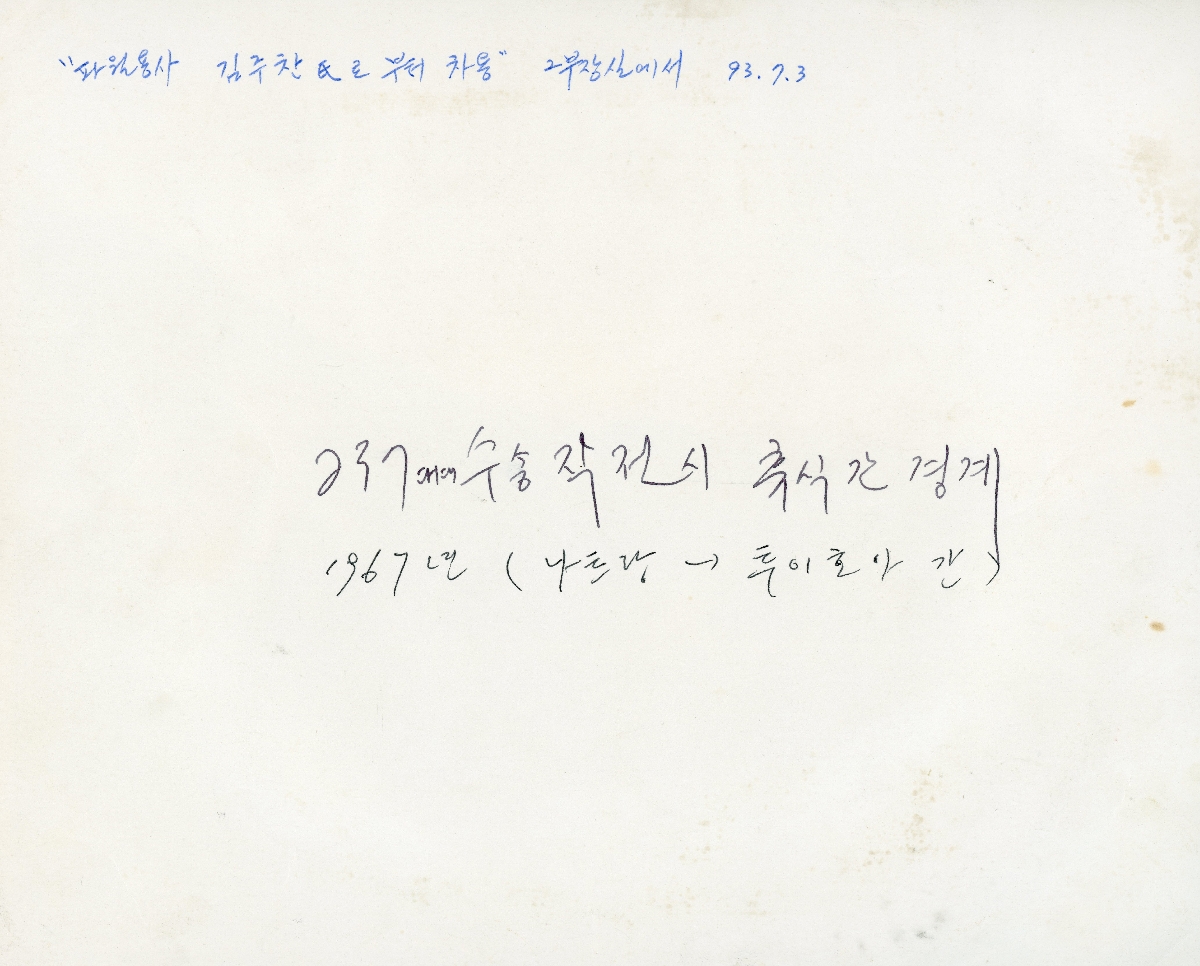 "파월용사 김주찬 氏로 부터 차용" 2부장실에서 93.7.3
237대대 수송작전시 휴식간 경계
1967년 (나트랑 → 투이호아 간)